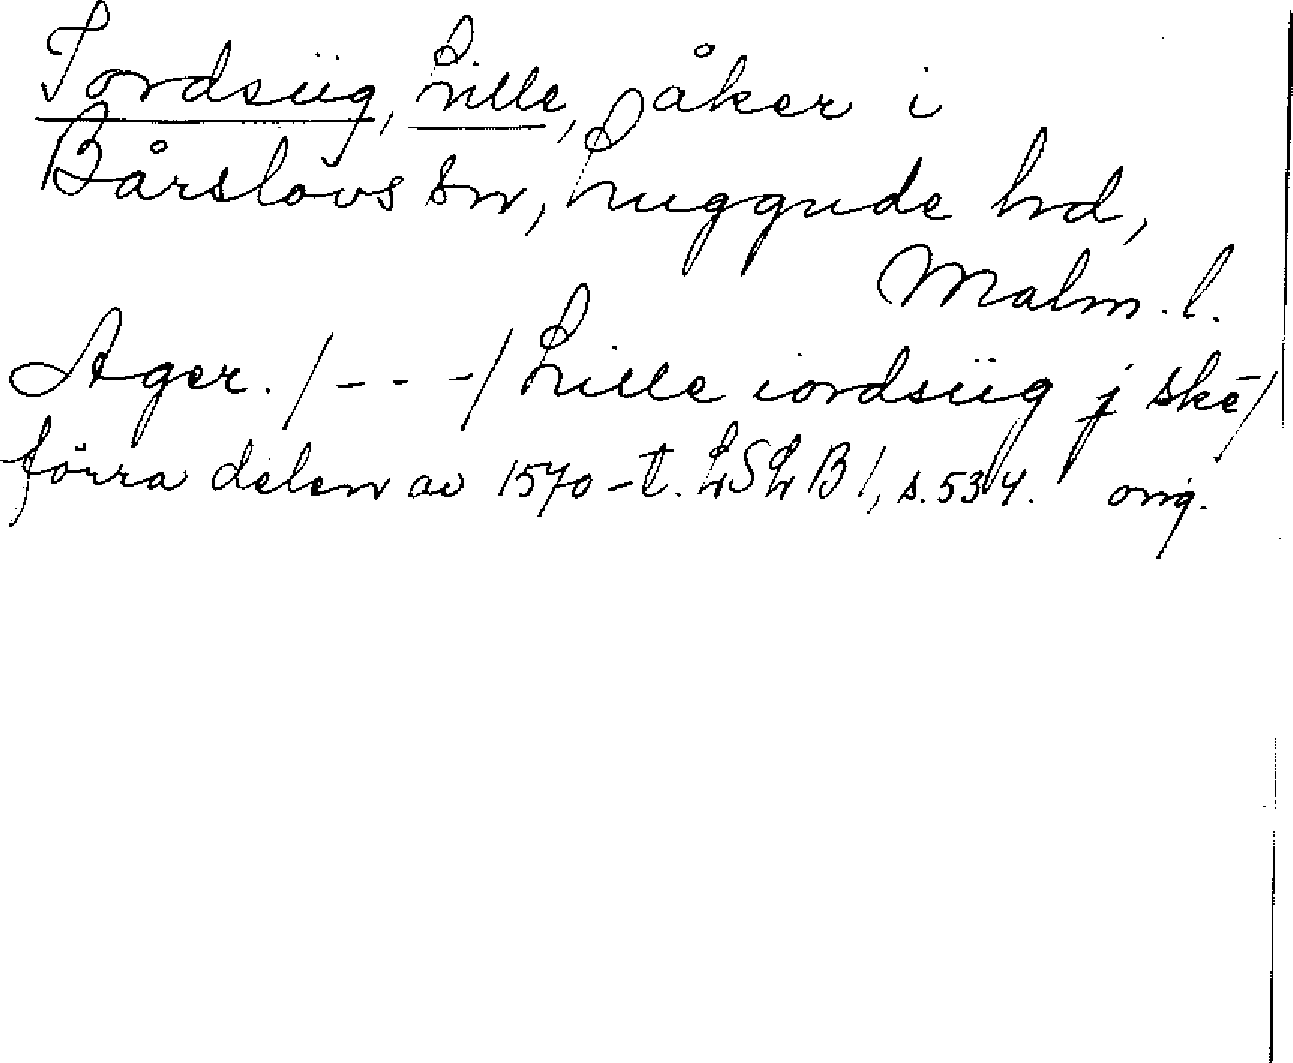 Iordsiig, Lille, åker i
Bårslövs sn, Luggude hd,
Malm. l.
Ager. /- - -/ Lille iordsiig j ske/
förra delen av 1570-t. LSLB 1, s. 534. orig.